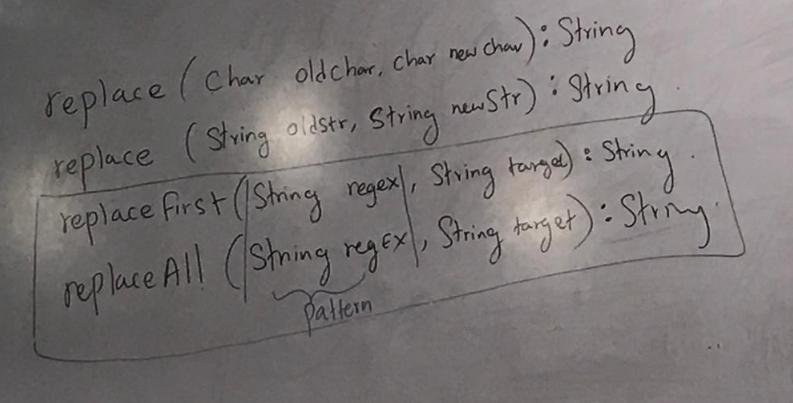 replace (Char oldchar, char newchar): String
replace (String oldstr, String newStr) : String
replaceFirst (String regex, String target) : String
replaceAll (String regEx, String target) : String
pattern